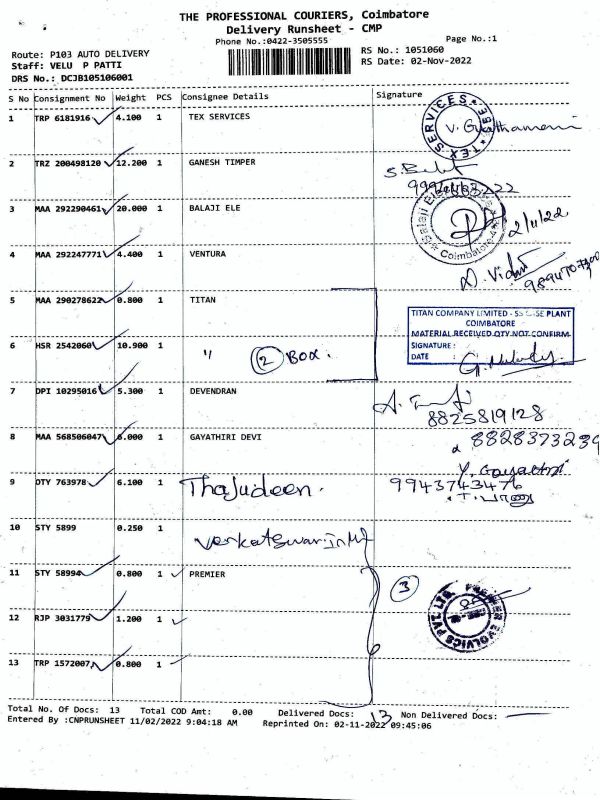 THE PROFESSIONAL COURIERS, Coimbatore
Delivery Runsheet - CMP
Phone No.:0422-3505555
Page No.:1
Route: P103 AUTO DELIVERY
Staff: VELU P PATTI
DRS No.: DCJB105106001
RS No.: 1051060
RS Date: 02-Nov-2022
S No Consignment No Weight PCS Consignee Details Signature
1 TRP 6181916 4.100 1 TEX SERVICES
TEX SERVICES
2 TRZ 200498120 12.200 1 GANESH TIMPER
3 MAA 292290461 20.000 1 BALAJI ELE
Balaji Coimbatore
2/11/22
4 MAA 292247771 4.400 1 VENTURA
5 MAA 290278622 0.800 1 TITAN
TITAN COMPANY LIMITED - PLANT
COIMBATORE
MATERIAL RECEIVED QTY NOT CONFIRM
SIGNATURE :
DATE
6 HSR 2542060 10.900 1 " 2 BOX.
7 DPI 10295016 5.300 1 DEVENDRAN
8825819128
8 MAA 568506047 6.000 1 GAYATHIRI DEVI
8828373239
Y. Gayathri
9 OTY 763978 6.100 1 Thajudeen.
9943743476
10 STY 5899 0.250 1
11 STY 58994 0.800 1 PREMIER
3
PREMIER EVOLVICS PVT. LTD.
12 RJP 3031779 1.200 1
13 TRP 1572007 0.800 1
Total No. Of Docs: 13 Total COD Amt: 0.00 Delivered Docs: 13 Non Delivered Docs:
Entered By :CNPRUNSHEET 11/02/2022 9:04:18 AM Reprinted On: 02-11-2022 09:45:06